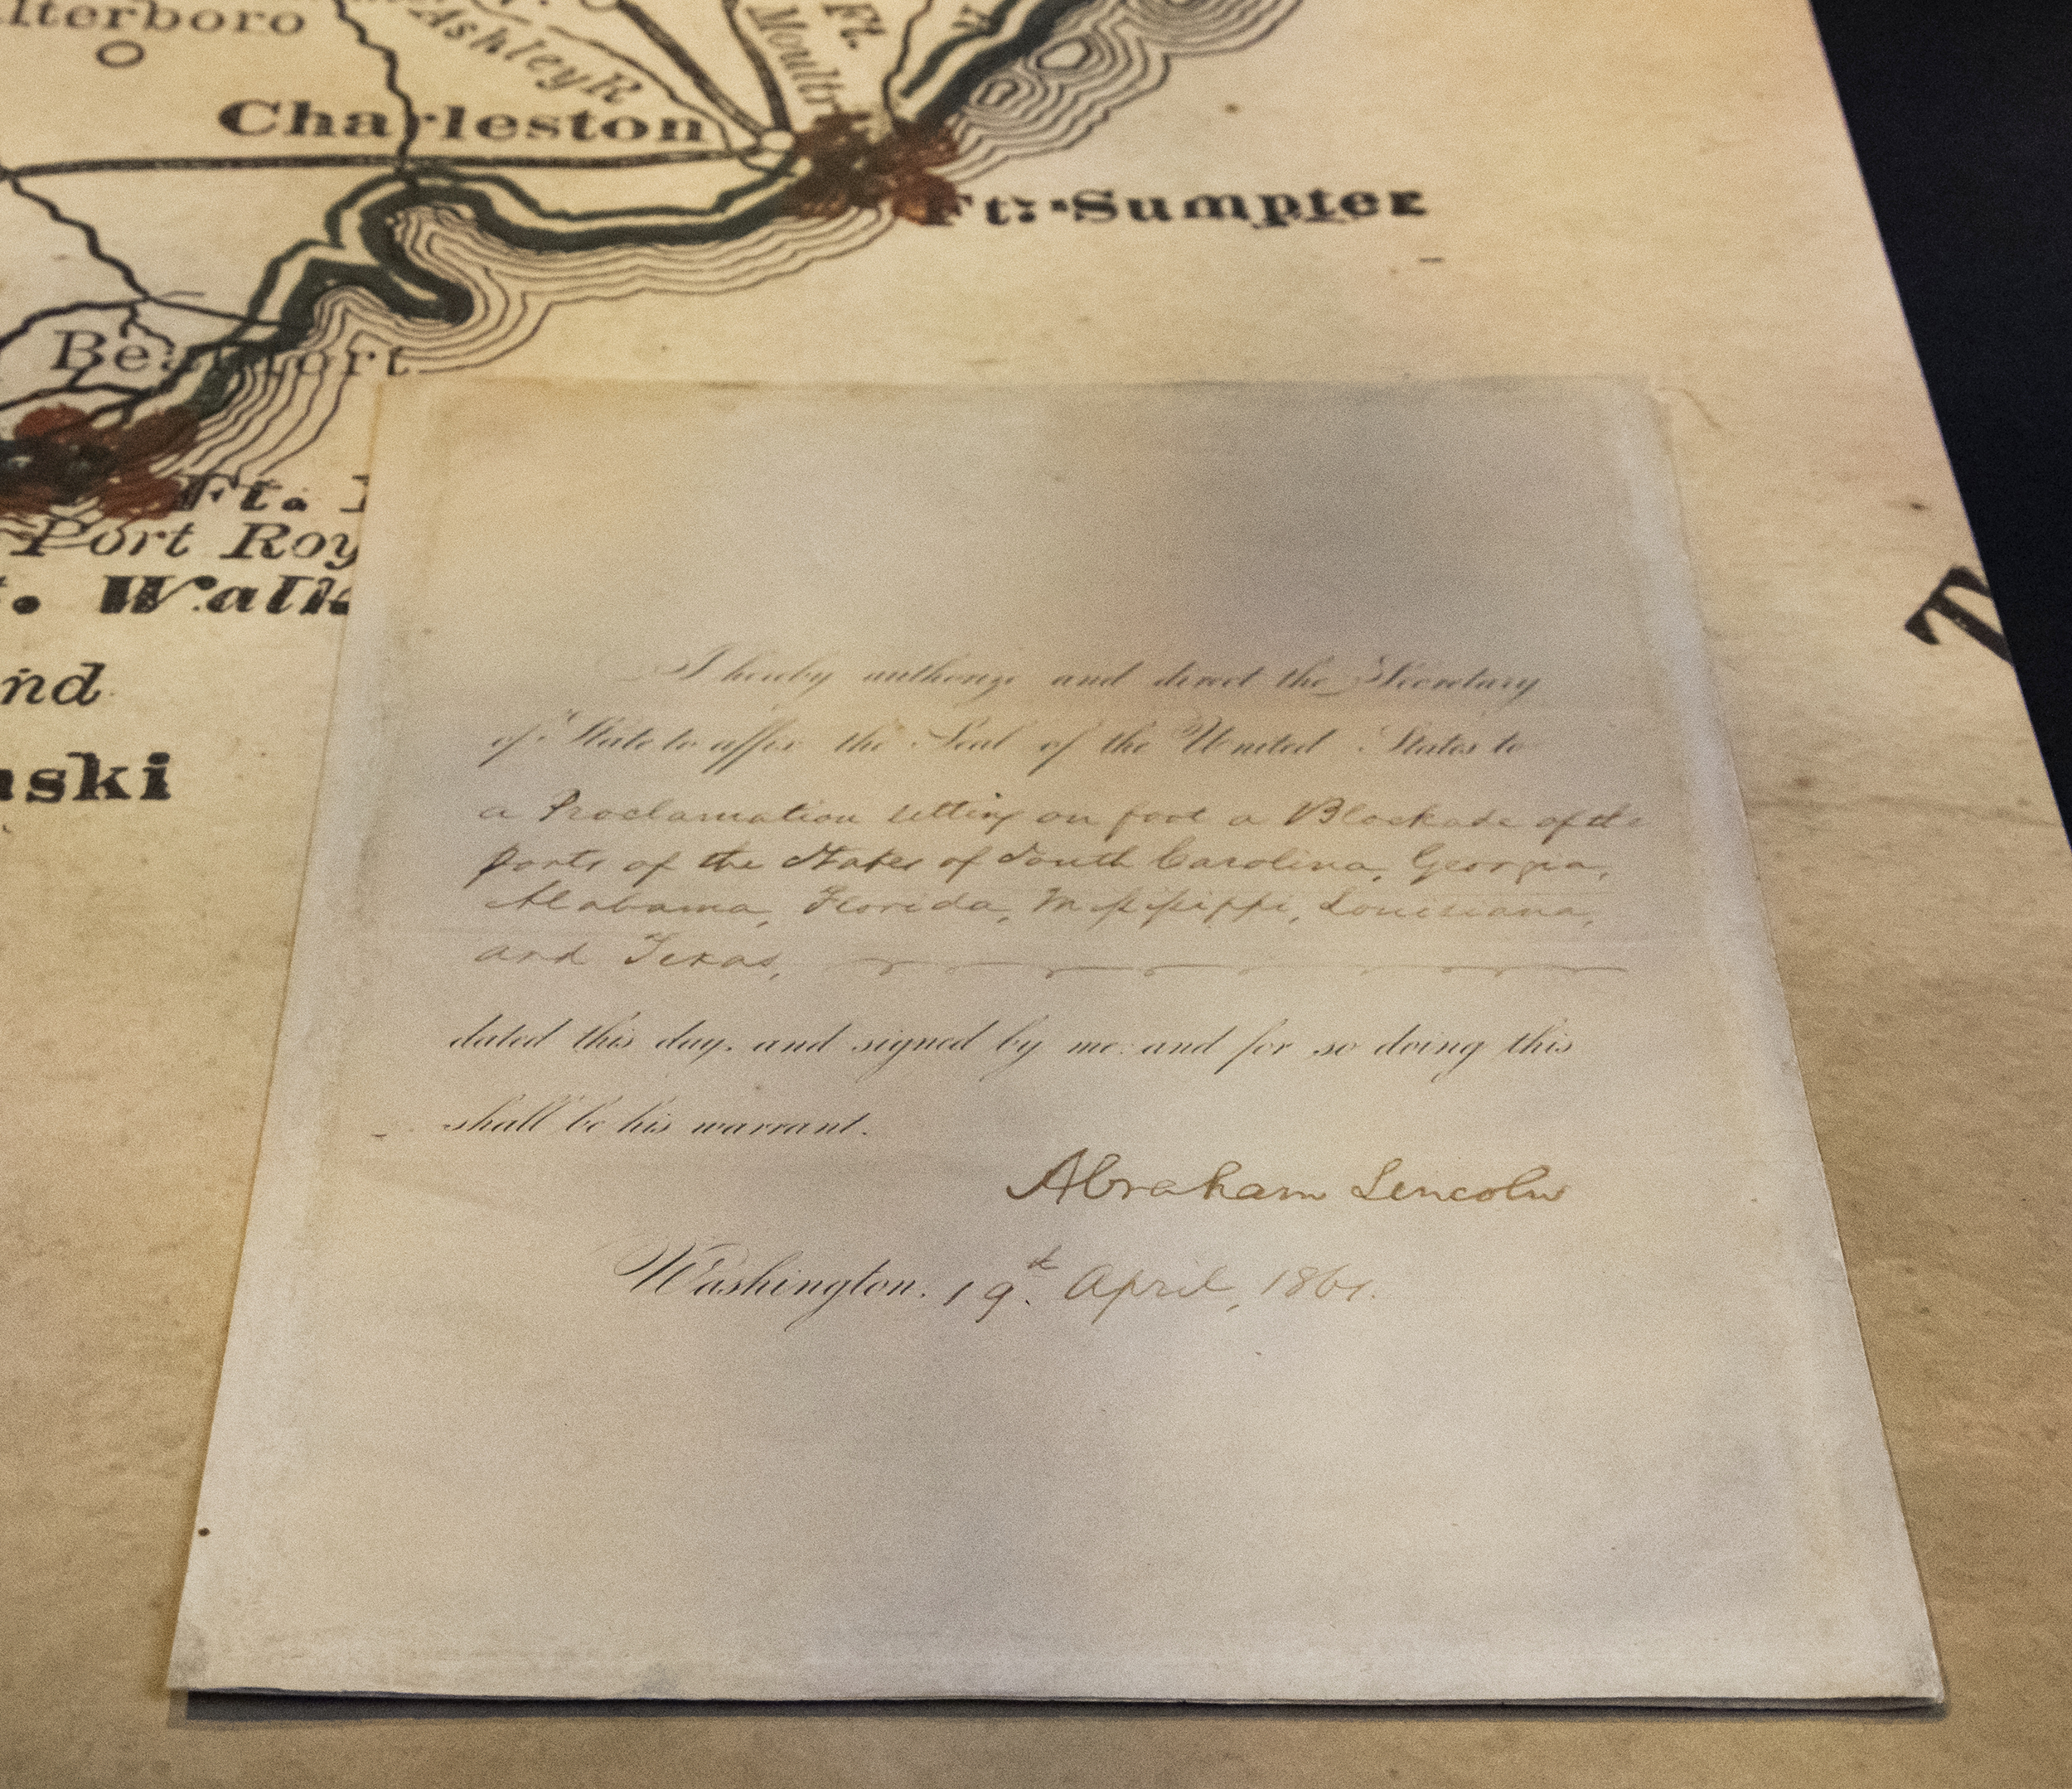 lterboro
Ashley R
Ft.
Moultr
Charleston
Ft: Sumpter
Beaufort
Ft.
Port Roy
. Walk
nd
aski
T
I hereby authorize and direct the Secretary
of State to affix the Seal of the United States to
a Proclamation setting on foot a Blockade of the
ports of the States of South Carolina, Georgia,
Alabama, Florida, Mississippi, Louisiana,
and Texas,
dated this day, and signed by me: and for so doing this
shall be his warrant.
Abraham Lincoln
Washington. 19th. April, 1861.